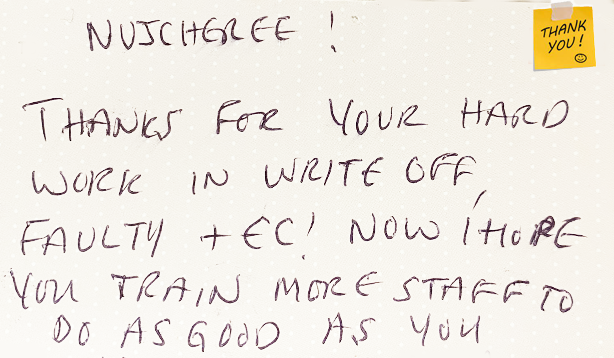 NUJCHEREE !
THANK
YOU!
THANKS FOR YOUR HARD
WORK IN WRITE OFF,
FAULTY + EC! NOW I HOPE
YOU TRAIN MORE STAFF TO
DO AS GOOD AS YOU